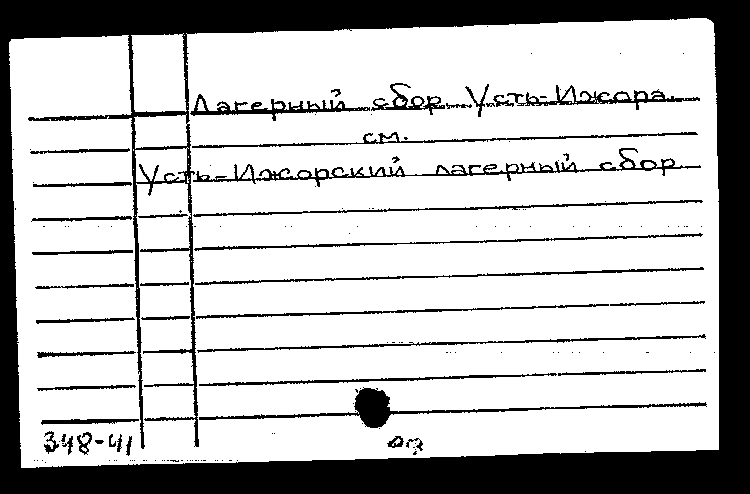 Лагерный сбор Усть-Ижора.
см.
Усть-Ижорский лагерный сбор
348-41